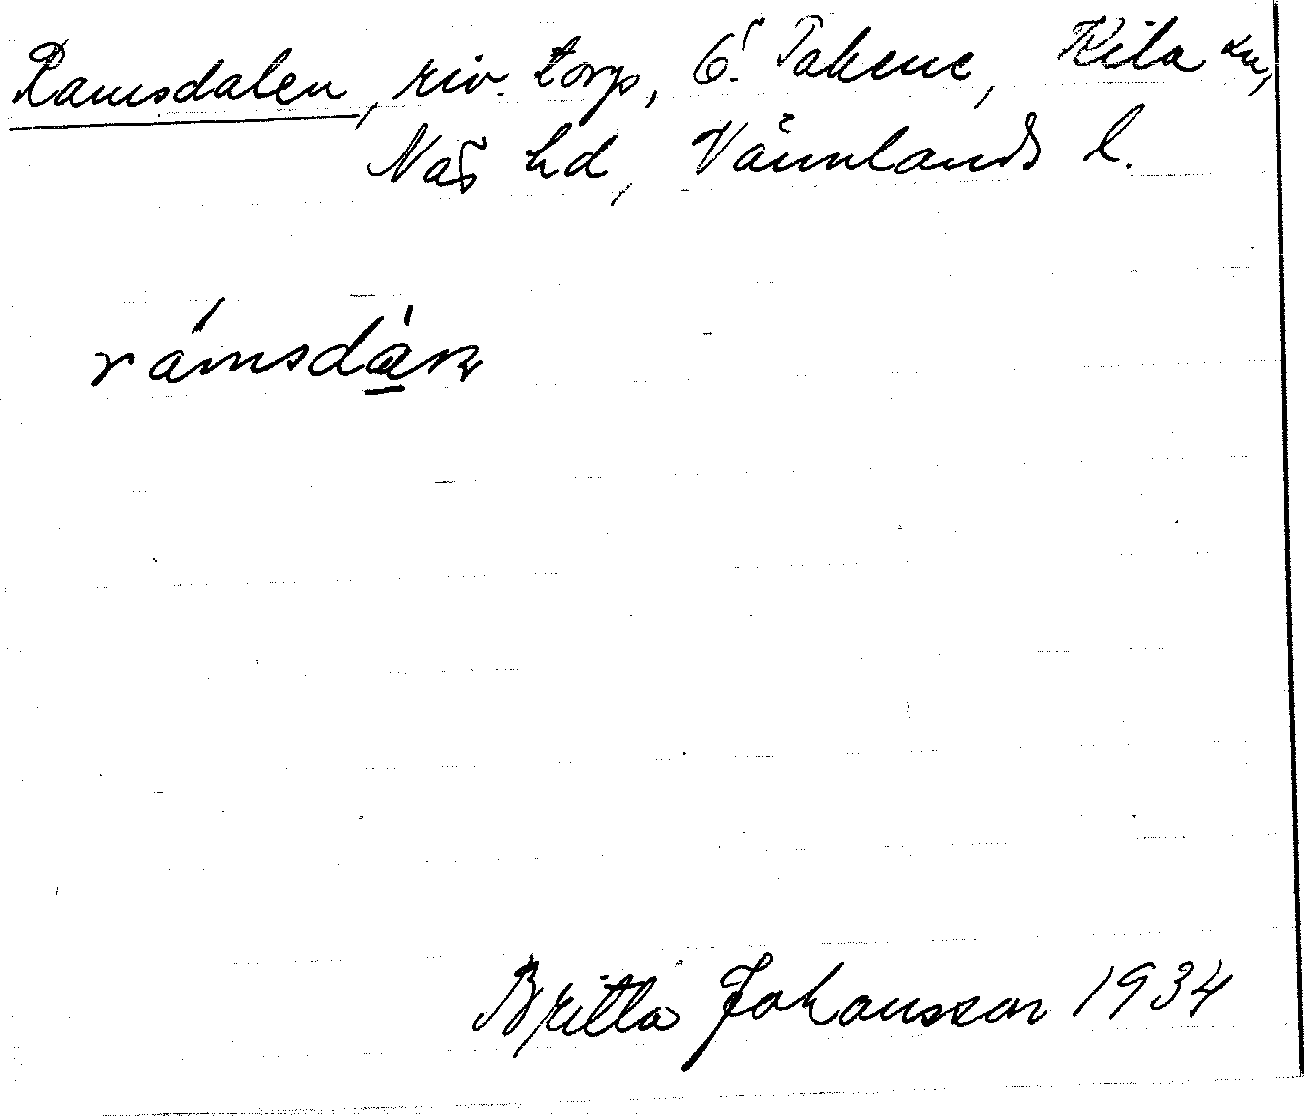 Ramsdalen, riv. torp, G:a Takene, Kila sn,
Näs hd, Värmlands l.
rámsdàn
Britta Johansson 1934